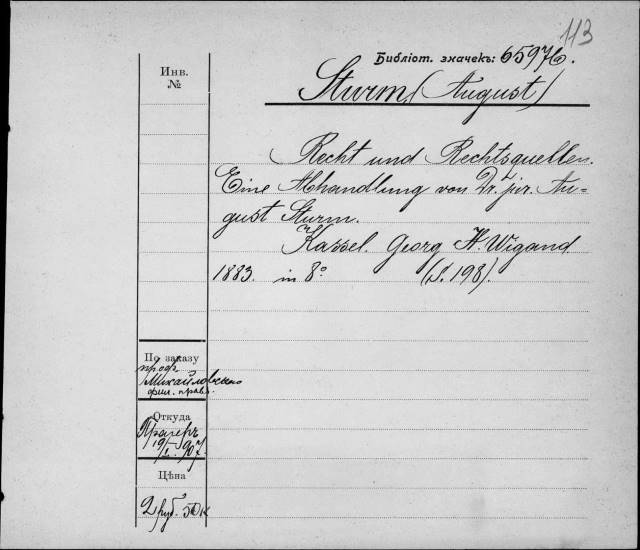 113
Библіот. значекъ: 65976.
Инв.
№
Sturm (August)
Recht und Rechtsquellen.
Eine Abhandlung von Dr. jur. Au-
gust Sturm.
Kassel. Georg H. Wigand.
1883. in 8° (S. 198).
По заказу
проф.
Михайловскаго
фил. права.
Откуда
19 907
Цѣна
2 руб. 50 к